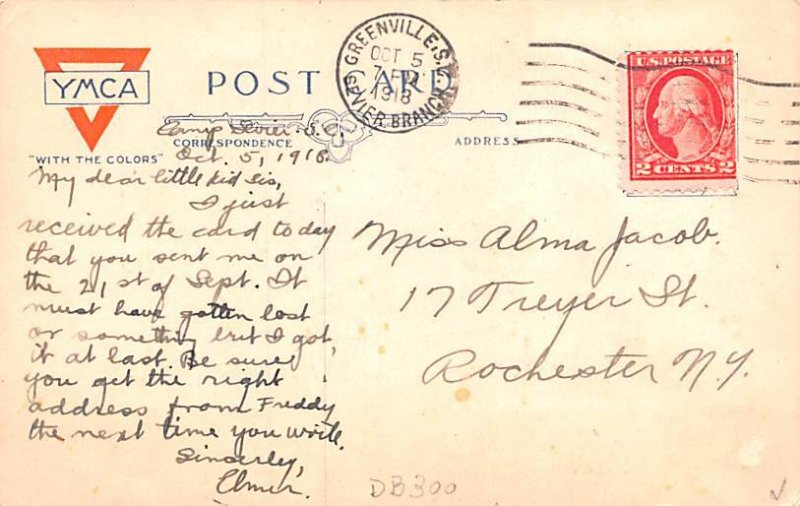 YMCA
"WITH THE COLORS"
POST CARD
CORRESPONDENCE
ADDRESS
GREENVILLE, S.C.
OCT 5
7 PM
1918
SEVIER BRANCH
U.S. POSTAGE
2 CENTS 2
Camp Sevier. S.C.
Oct. 5, 1918.
My dear little kid Sis,
I just
received the card today
that you sent me on
the 21st of Sept. It
must have gotten lost
or something but I got
it at last. Be sure
you get the right
address from Freddy
the next time you write.
Sincerely,
Elmer.
Miss Alma Jacob.
17 Treyer St.
Rochester N.Y.
DB300